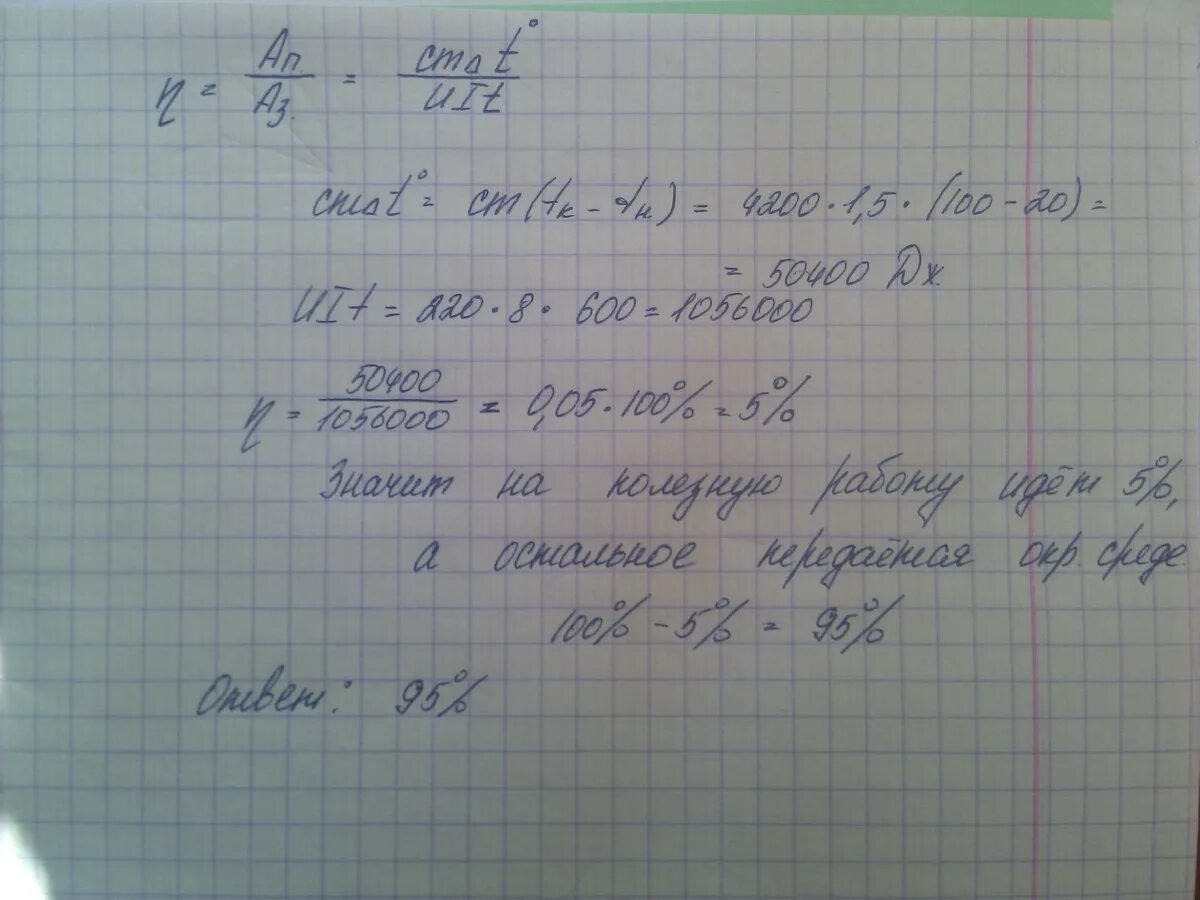 η = Aп. / Aз. = cmΔt° / UIt
cmΔt° = cm(tк - tн) = 4200·1,5·(100-20) =
= 50400 Дж.
UIt = 220·8·600=1056000
η = 50400 / 1056000 = 0,05·100% = 5%
Значит на полезную работу идёт 5%,
а остальное передаётся окр. среде.
100% - 5% = 95%
Ответ: 95%